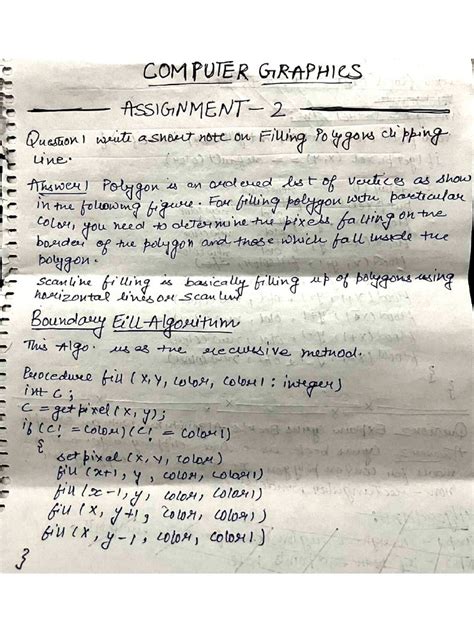 COMPUTER GRAPHICS
ASSIGNMENT - 2
Question 1 write a short note on Filling Polygons clipping
line.
Answer 1 Polygon is an ordered list of vertices as show
in the following figure. For filling polygon with particular
color, you need to determine the pixels falling on the
border of the polygon and those which fall inside the
polygon.
Scanline filling is basically filling up of polygons using
horizontal lines or scanline
Boundary Fill Algorithm
This Algo. uses the recursive method.
Procedure fill (x, y, color, color1 : integer)
int c;
c = getpixel (x, y);
if (c! = color) (c! = color1)
{
setpixel (x, y, color)
fill (x+1, y, color, color1)
fill (x-1, y, color, color1)
fill (x, y+1, color, color1)
fill (x, y-1, color, color1)
}